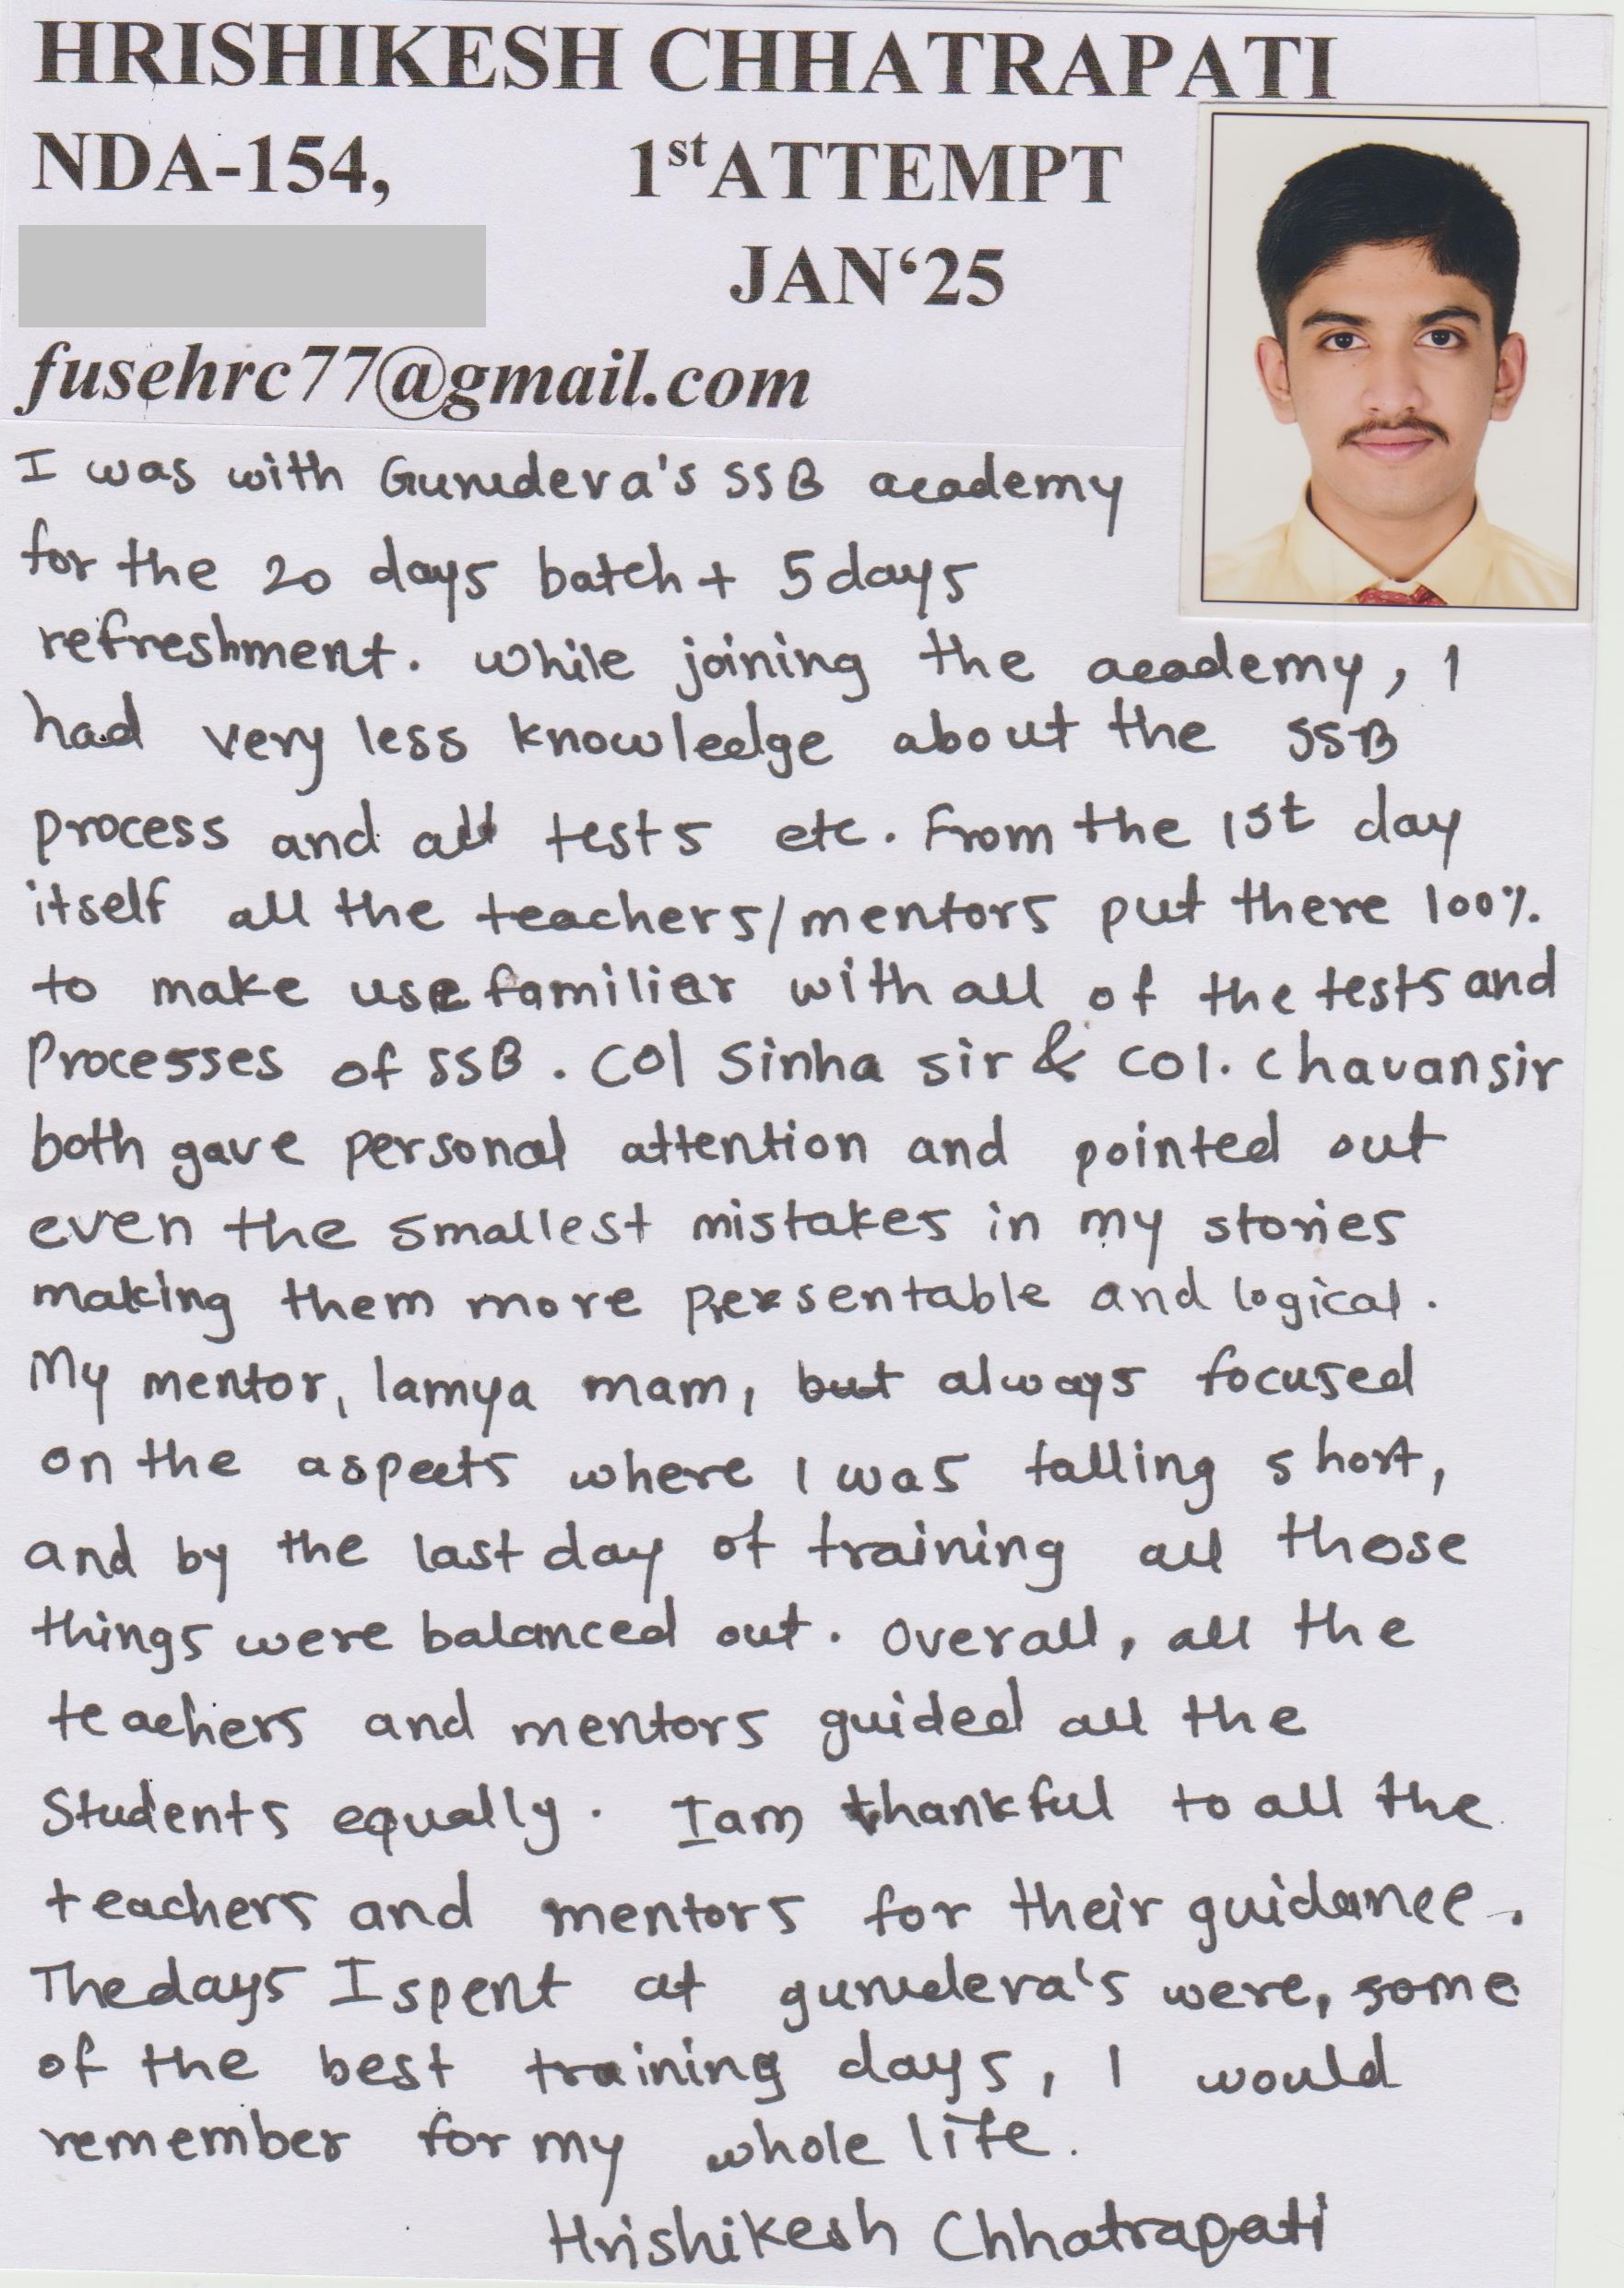 HRISHIKESH CHHATRAPATI
NDA-154, 1st ATTEMPT
JAN‘25
fusehrc77@gmail.com
I was with Gurudeva's SSB academy
for the 20 days batch + 5 days
refreshment. While joining the academy, I
had very less knowledge about the SSB
process and all tests etc. From the 1st day
itself all the teachers/mentors put there 100%
to make use familier with all of the tests and
Processes of SSB. Col Sinha sir & Col. Chavan sir
both gave personal attention and pointed out
even the smallest mistakes in my stories
making them more presentable and logical.
My mentor, lamya mam, but always focused
on the aspects where I was falling short,
and by the last day of training all those
things were balanced out. Overall, all the
teachers and mentors guided all the
Students equally. I am thankful to all the
teachers and mentors for their guidance.
The days I spent at gurudeva's were, some
of the best training days, I would
remember for my whole life.
Hrishikesh Chhatrapati